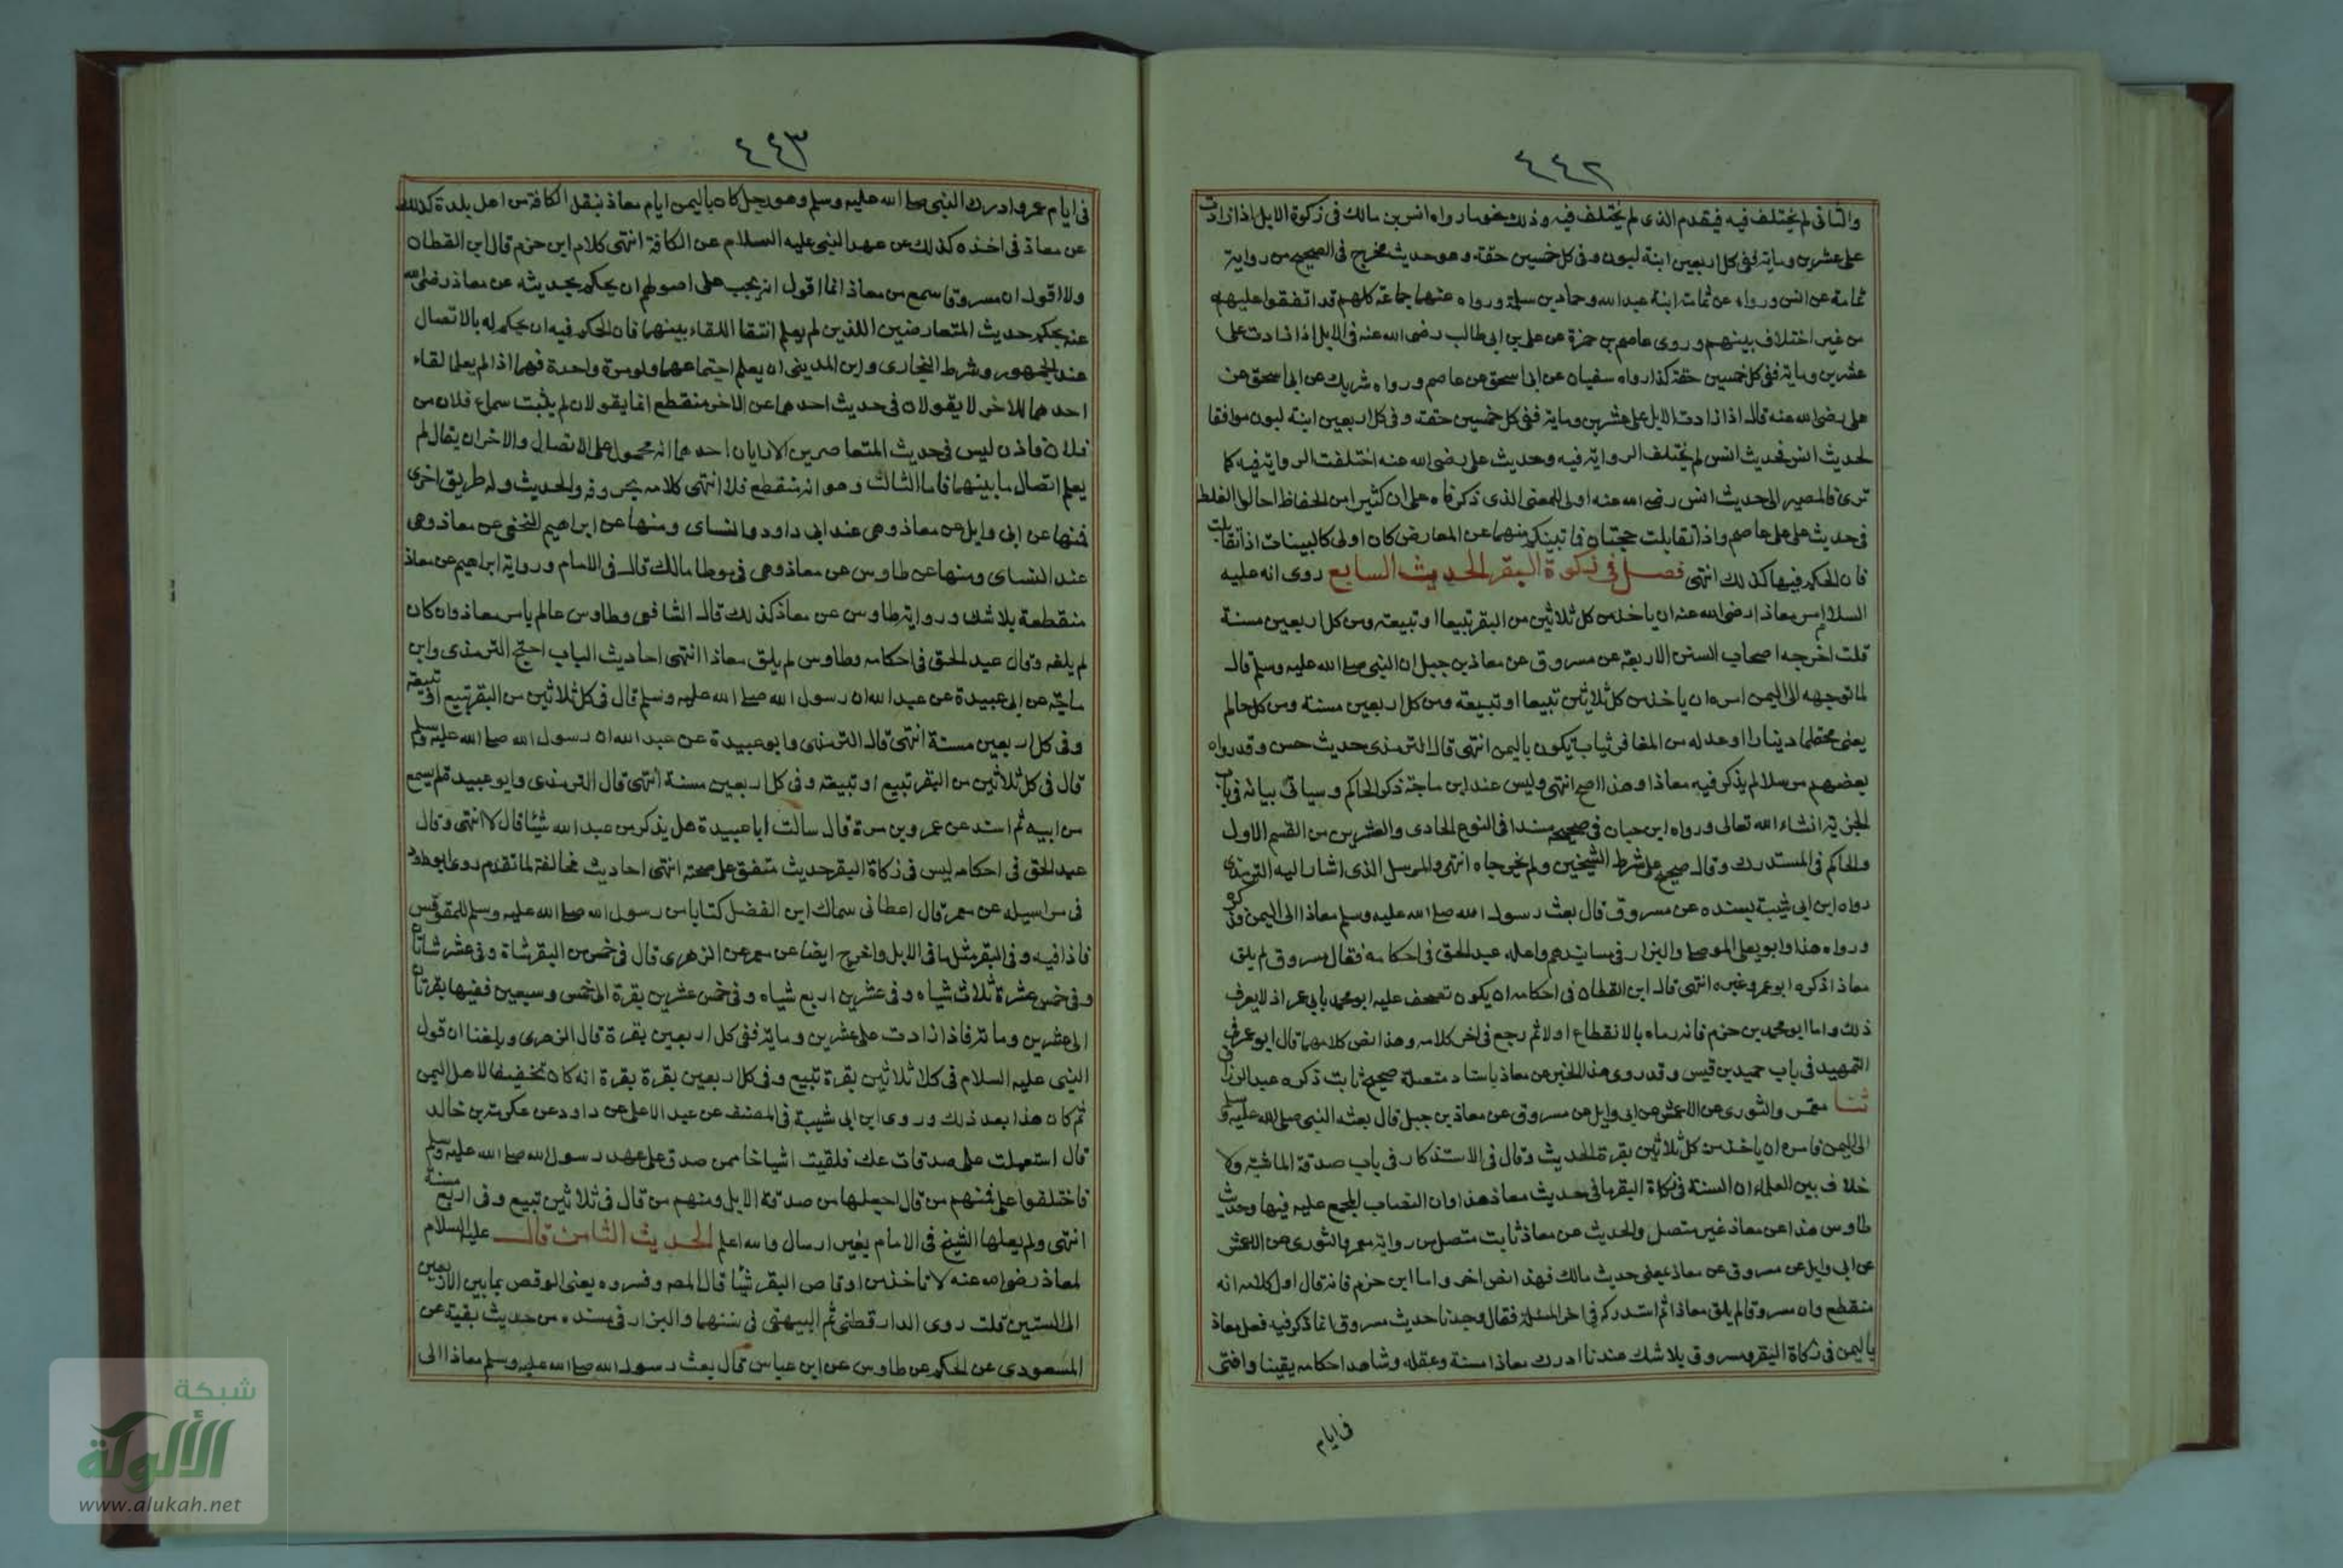 ٤٤٢
والثانى لم يختلف فيه فيقدم الذى لم يختلف فيه وذلك نحو ما رواه انس بن مالك فى زكوة الابل اذا زادت
على عشرين وماية ففى كل اربعين ابنة لبون وفى كل خمسين حقة وهو حديث مخرج فى الصحيح من رواية
ثمامة عن انس ورواه عن ثمامة ابنه عبد الله وحماد بن سلمة ورواه عنهما جماعة كلهم قد اتفقوا عليه
من غير اختلاف بينهم وروى عاصم بن حمزة عن على بن ابى طالب رضى الله عنه فى الابل اذا زادت على
عشرين وماية ففى كل خمسين حقة كذا رواه سفيان عن ابى اسحق عن عاصم ورواه شريك عن ابى اسحق عن
على رضى الله عنه قال اذا زادت الابل على عشرين وماية ففى كل خمسين حقة وفى كل اربعين ابنة لبون موافقا
لحديث انس فحديث انس لم يختلف الرواية فيه وحديث على رضى الله عنه اختلفت الرواية فيه كما
ترى فالمصير الى حديث انس رضى الله عنه اولى للمعنى الذى ذكرناه على ان كثيرا من الحفاظ احالوا الغلط
فى حديث على على عاصم واذا تقابلت حجتان فما تبين منهما عن المعارض كان اولى كالبينات اذا تقابلت
فان الحكم فيها كذلك انتهى فصل فى زكوة البقر الحديث السابع روى انه عليه
السلام امر معاذا رضى الله عنه ان ياخذ من كل ثلاثين من البقر تبيعا او تبيعة ومن كل اربعين مسنة
قلت اخرجه اصحاب السنن الاربعة عن مسروق عن معاذ بن جبل ان النبى صلى الله عليه وسلم قال
لما توجهه الى اليمن امره ان ياخذ من كل ثلاثين تبيعا او تبيعة ومن كل اربعين مسنة ومن كل حالم
يعنى محتلما دينارا او عدله من المعافرى ثياب يكون باليمن انتهى قال الترمذى حديث حسن وقد رواه
بعضهم مرسلا لم يذكر فيه معاذا وهذا اصح انتهى وليس عند ابن ماجة ذكر الحاكم وسياتى بيانه فى باب
الجزية انشاء الله تعالى ورواه ابن حبان فى صحيحه مسندا فى النوع الحادى والعشرين من القسم الاول
والحاكم فى المستدرك وقال صحيح على شرط الشيخين ولم يخرجاه انتهى والمرسل الذى اشار اليه الترمذى
رواه ابن ابى شيبة بسنده عن مسروق قال بعث رسول الله صلى الله عليه وسلم معاذا الى اليمن فذكره
ورواه هذا وابو يعلى الموصلى والبزار فى مسانيدهم واعله عبد الحق فى احكامه فقال مسروق لم يلق
معاذا ذكره ابو عمر وغيره انتهى قال ابن القطان فى احكامه ان يكون تصحف عليه ابو محمد بابى عمر اذ لا يعرف
ذلك واما ابو محمد بن حزم فانه رماه بالانقطاع اولا ثم رجع فى اخر كلامه وهذا نص كلامهما قال ابو عمر فى
التمهيد فى باب حميد بن قيس وقد روى هذا الخبر عن معاذ باسناد متصلة صحيح ثابت ذكره عبد الرزاق
ثنا معمر والثورى عن الاعمش عن ابى وايل عن مسروق عن معاذ بن جبل قال بعثه النبى صلى الله عليه وسلم
الى اليمن فامره ان ياخذ من كل ثلاثين بقرة الحديث وقال فى الاستذكار فى باب صدقة الماشية ولا
خلاف بين العلماء ان السنة فى زكاة البقر ما فى حديث معاذ هذا وان النصاب المجمع عليه فيها وحديث
طاوس هذا عن معاذ غير متصل والحديث عن معاذ ثابت متصل من رواية معمر والثورى عن الاعمش
عن ابى وايل عن مسروق عن معاذ بمعنى حديث مالك فهذا نص اخر واما ابن حزم فانه قال اول كلامه انه
منقطع وان مسروقا لم يلق معاذا ثم استدركه فى اخر المسئلة فقال وجدنا حديث مسروق انما ذكر فيه فعل معاذ
باليمن فى زكاة البقر ومسروق بلا شك عندنا ادرك معاذا بسنة وعقله وشاهد احكامه يقينا وافتى
فى ايام
٤٤٣
فى ايام عمر وادرك النبى صلى الله عليه وسلم وهو رجل كان باليمن ايام معاذ بنقل الكافة من اهل بلدة كذلك
عن معاذ فى اخذه كذلك عن عهد النبى عليه السلام عن الكافة انتهى كلام ابن حزم قال ابن القطان
ولا اقول ان مسروقا سمع من معاذ انما اقول انه يجب على اصولهم ان يحكم بحديثه عن معاذ رضى الله
عنه بحكم حديث المتعارضين اللذين لم يعلم انتفا اللقاء بينهما فان الحكم فيه ان يحكم له بالاتصال
عند الجمهور وشرط البخارى وابن المدينى ان يعلم اجتماعهما ولو مرة واحدة فهما اذا لم يعلما لقاء
احدهما للاخر لا يقولان فى حديث احدهما عن الاخر منقطع انما يقولان لم يثبت سماع فلان من
فلان فاذن ليس فى حديث المتعاصرين الا رايان احدهما انه محمول على الاتصال والاخر ان يقال لم
يعلم اتصال ما بينهما فاما الثالث وهو انه منقطع فلا انتهى كلامه بحروفه والحديث وله طريق اخرى
فمنها عن ابى وايل عن معاذ وهى عند ابى داود والنساى ومنها عن ابراهيم النخعى عن معاذ وهى
عند النساى ومنها عن طاوس عن معاذ وهى فى موطا مالك قال فى الامام ورواية ابراهيم عن معاذ
منقطعة بلا شك ورواية طاوس عن معاذ كذلك قال الشافعى وطاوس عالم بامر معاذ وان كان
لم يلقه وقال عبد الحق فى احكامه وطاوس لم يلق معاذا انتهى احاديث الباب احتج الترمذى وابن
ماجة عن ابى عبيدة عن عبد الله ان رسول الله صلى الله عليه وسلم قال فى كل ثلاثين من البقر تبيع او تبيعة
وفى كل اربعين مسنة انتهى قال الترمذى وابو عبيدة عن عبد الله ان رسول الله صلى الله عليه وسلم
قال فى كل ثلاثين من البقر تبيع او تبيعة وفى كل اربعين مسنة انتهى قال الترمذى وابو عبيدة لم يسمع
من ابيه ثم اسند عن عمرو بن مرة قال سالت ابا عبيدة هل يذكر من عبد الله شيئا قال لا انتهى وقال
عبد الحق فى احكامه ليس فى زكاة البقر حديث متفق على صحته انتهى احاديث مخالفة لما تقدم روى ابو داود
فى مراسيله عن معمر قال اعطانى سماك ابن الفضل كتابا من رسول الله صلى الله عليه وسلم للمقوقس
فاذا فيه وفى البقر مثل ما فى الابل واخرج ايضا عن معمر عن الزهرى قال فى خمس من البقر شاة وفى عشر شاتان
وفى خمس عشرة ثلاث شياه وفى عشرين اربع شياه وفى خمس عشرين بقرة الى خمس وسبعين ففيها بقرتان
الى عشرين وماية فاذا زادت على عشرين وماية ففى كل اربعين بقرة قال الزهرى وبلغنا ان قول
النبى عليه السلام فى كل ثلاثين بقرة تبيع وفى كل اربعين بقرة بقرة انه كان تخفيفا لاهل اليمن
ثم كان هذا بعد ذلك وروى ابن ابى شيبة فى المصنف عن عبد الاعلى عن داود عن عكرمة بن خالد
قال استعملت على صدقات عك فلقيت اشياخا ممن صدق على عهد رسول الله صلى الله عليه وسلم
فاختلفوا على فمنهم من قال اجعلها من صدقة الابل ومنهم من قال فى ثلاثين تبيع وفى اربع مسنة
انتهى ولم يعلها الشيخ فى الامام بغير ارسال والله اعلم الحديث الثامن قال عليه السلام
لمعاذ رضى الله عنه لا تاخذ من اوقاص البقر شيئا قال المص وفسروه يعنى الوقص بما بين الاربعين
الى الستين قلت روى الدارقطنى ثم البيهقى فى سننهما والبزار فى مسنده من حديث بقية عن
المسعودى عن الحكم عن طاوس عن ابن عباس قال بعث رسول الله صلى الله عليه وسلم معاذا الى
شبكة
الألوكة
www.alukah.net